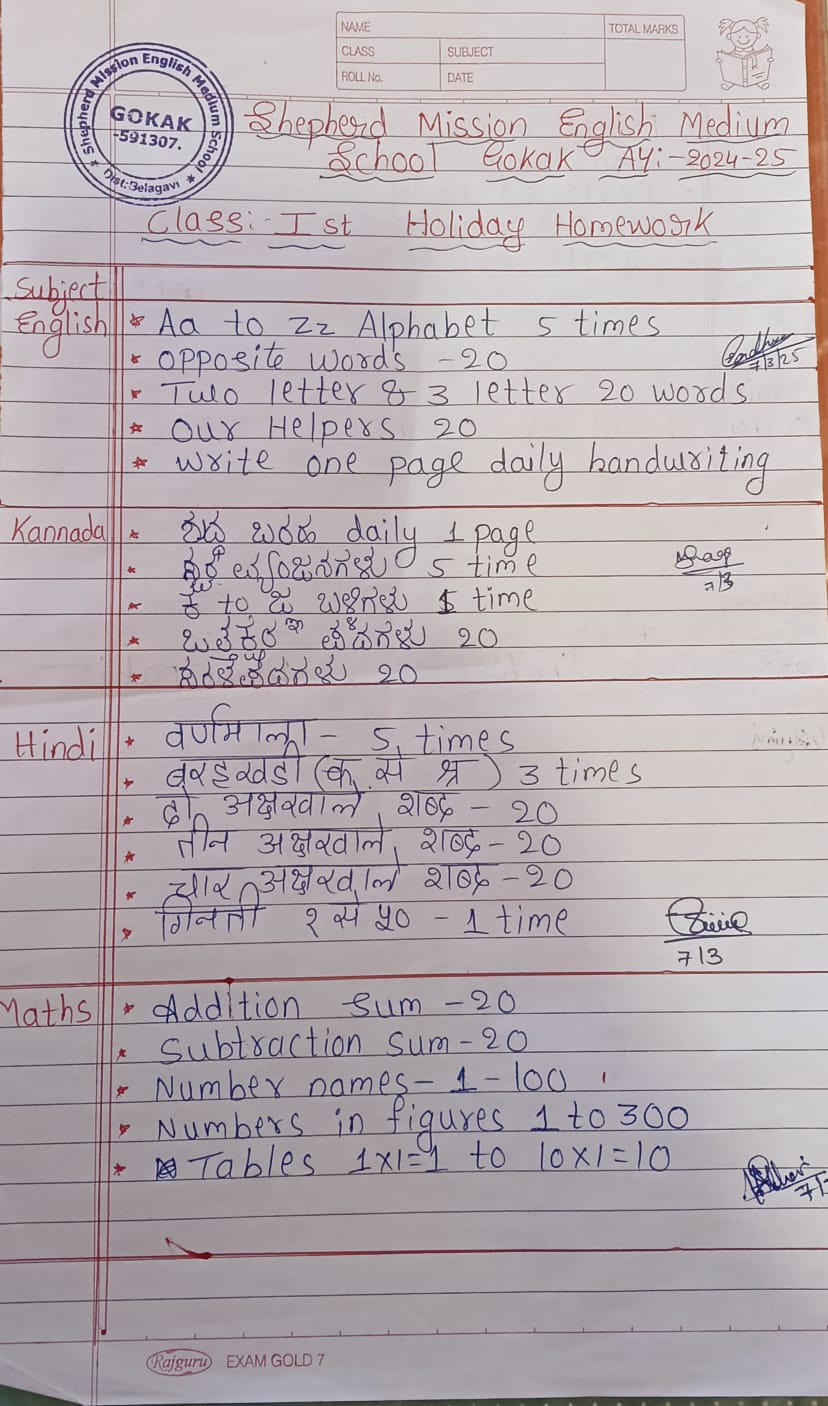 NAME
TOTAL MARKS
CLASS
SUBJECT
ROLL No.
DATE
Shepherd Mission English Medium School
GOKAK
-591307.
Dist:Belagavi
Shepherd Mission English Medium
School Gokak AY:-2024-25
Class:- Ist Holiday Homework
Subject
English
* Aa to Zz Alphabet 5 times
* opposite words -20
7/3/25
* Two letter & 3 letter 20 words
* our Helpers 20
* write one page daily handwriting
Kannada
* ಶುದ್ಧ ಬರಹ daily 1 page
* 5 time
7/3
* ಕ to ಜ ಬಳ್ಳಿಗಳು 5 time
* ಒತ್ತಕ್ಷರ ಪದಗಳು 20
* ಸರಳ ಪದಗಳು 20
Hindi
* वर्णमाला - 5 times
* बारहखडी (क से श्र) 3 times
* दो अक्षरवाले शब्द - 20
* तीन अक्षरवाले शब्द - 20
* चार अक्षरवाले शब्द - 20
* गिनती १ से ५० - 1 time
7/3
Maths
* Addition sum -20
* Subtraction sum -20
* Number names - 1 - 100
* Numbers in figures 1 to 300
* Tables 1x1=1 to 10x1=10
Rajguru EXAM GOLD 7